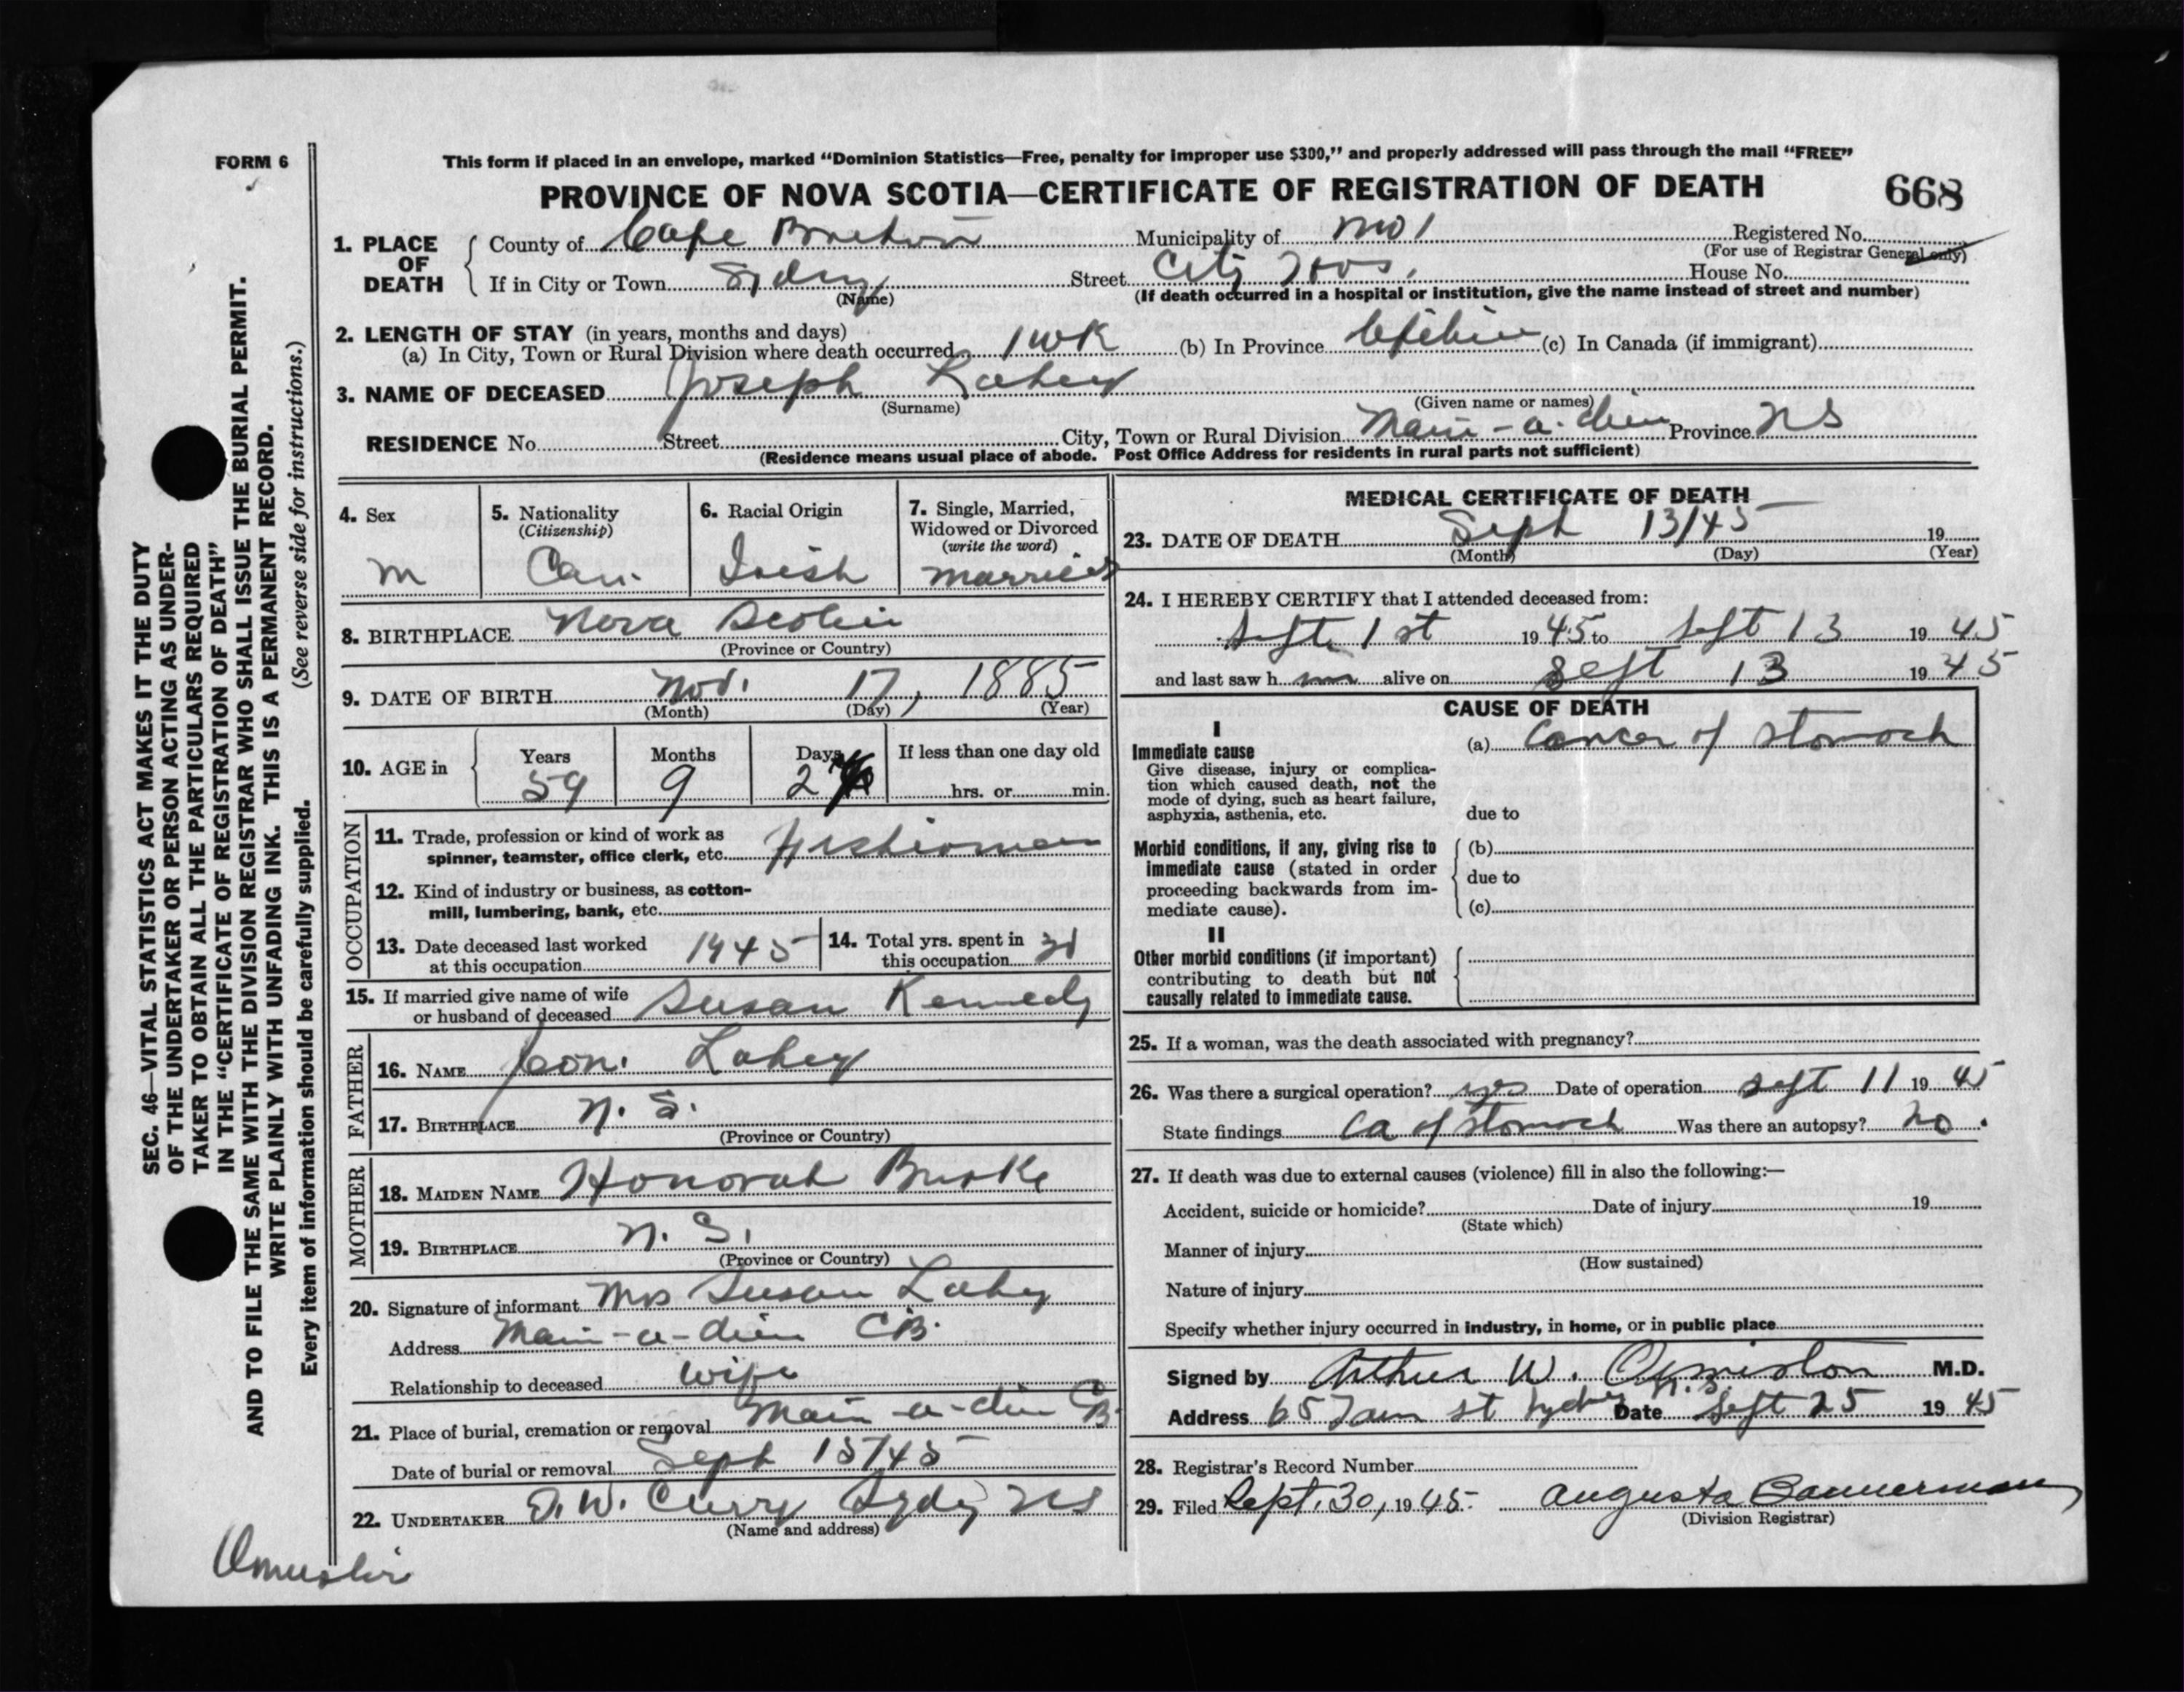 FORM 6
This form if placed in an envelope, marked “Dominion Statistics—Free, penalty for improper use $300,” and properly addressed will pass through the mail “FREE”
PROVINCE OF NOVA SCOTIA—CERTIFICATE OF REGISTRATION OF DEATH
668
1. PLACE OF DEATH
County of Cape Breton Municipality of No 1 Registered No.
(For use of Registrar General only)
If in City or Town Sydney Street City Hos. House No.
(Name) (If death occurred in a hospital or institution, give the name instead of street and number)
2. LENGTH OF STAY (in years, months and days)
(a) In City, Town or Rural Division where death occurred 1 wk (b) In Province (c) In Canada (if immigrant)
3. NAME OF DECEASED Joseph Lahey
(Surname) (Given name or names)
RESIDENCE No. Street City, Town or Rural Division Main-a-dieu Province NS
(Residence means usual place of abode. Post Office Address for residents in rural parts not sufficient)
4. Sex
M
5. Nationality
(Citizenship)
Can.
6. Racial Origin
Irish
7. Single, Married,
Widowed or Divorced
(write the word)
married
8. BIRTHPLACE Nova Scotia
(Province or Country)
9. DATE OF BIRTH Nov. 17, 1885
(Month) (Day) (Year)
10. AGE in
Years Months Days If less than one day old
59 9 2 hrs. or min.
OCCUPATION
11. Trade, profession or kind of work as
spinner, teamster, office clerk, etc. Fisherman
12. Kind of industry or business, as cotton-
mill, lumbering, bank, etc.
13. Date deceased last worked
at this occupation 1945
14. Total yrs. spent in
this occupation
15. If married give name of wife
or husband of deceased Susan Kennedy
FATHER
16. NAME Lahey
17. BIRTHPLACE N. S.
(Province or Country)
MOTHER
18. MAIDEN NAME Honorah Burke
19. BIRTHPLACE N. S.
(Province or Country)
20. Signature of informant Mrs Susan Lahey
Address Main-a-dieu CB.
Relationship to deceased wife
21. Place of burial, cremation or removal Main-a-dieu CB.
Date of burial or removal Sept 15/45
22. UNDERTAKER Curry Sydney NS
(Name and address)
MEDICAL CERTIFICATE OF DEATH
23. DATE OF DEATH Sept 13/45 19
(Month) (Day) (Year)
24. I HEREBY CERTIFY that I attended deceased from:
Sept 1st 1945 to Sept 13 1945
and last saw h im alive on Sept 13 1945
CAUSE OF DEATH
I
Immediate cause
(a) Cancer of stomach
Give disease, injury or complica-
tion which caused death, not the
mode of dying, such as heart failure,
asphyxia, asthenia, etc.
due to
Morbid conditions, if any, giving rise to
immediate cause (stated in order
proceeding backwards from im-
mediate cause).
(b)
due to
(c)
II
Other morbid conditions (if important)
contributing to death but not
causally related to immediate cause.
25. If a woman, was the death associated with pregnancy?
26. Was there a surgical operation? yes Date of operation Sept 11 1945
State findings Ca of stomach Was there an autopsy? no.
27. If death was due to external causes (violence) fill in also the following:—
Accident, suicide or homicide? Date of injury 19
(State which)
Manner of injury
(How sustained)
Nature of injury
Specify whether injury occurred in industry, in home, or in public place
Signed by Arthur W. Ormiston M.D.
Address St Sydney N.S. Date Sept 25 1945
28. Registrar’s Record Number
29. Filed Sept. 30, 1945. Augusta Bannerman
(Division Registrar)
SEC. 46—VITAL STATISTICS ACT MAKES IT THE DUTY
OF THE UNDERTAKER OR PERSON ACTING AS UNDER-
TAKER TO OBTAIN ALL THE PARTICULARS REQUIRED
IN THE “CERTIFICATE OF REGISTRATION OF DEATH”
AND TO FILE THE SAME WITH THE DIVISION REGISTRAR WHO SHALL ISSUE THE BURIAL PERMIT.
WRITE PLAINLY WITH UNFADING INK. THIS IS A PERMANENT RECORD.
Every item of information should be carefully supplied. (See reverse side for instructions.)